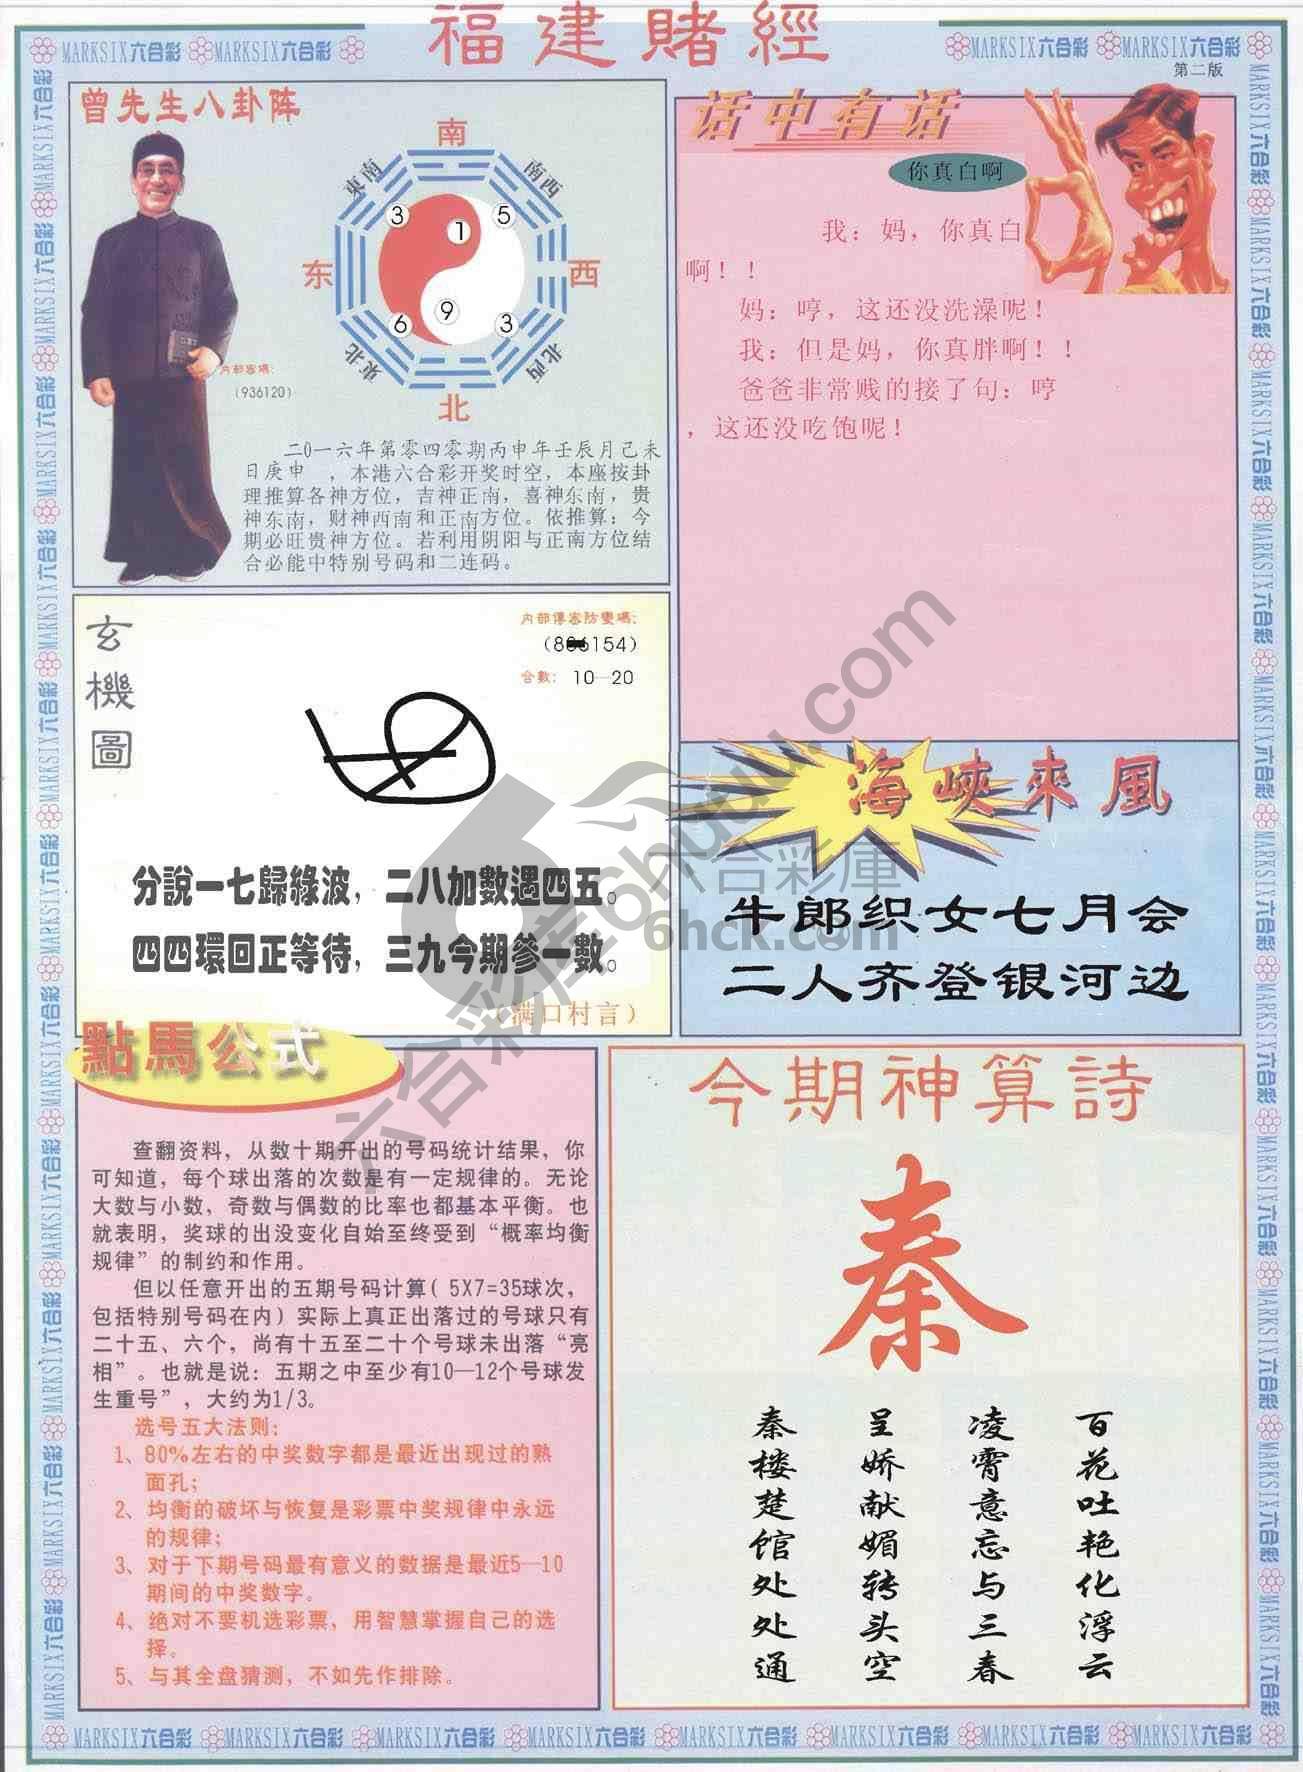 福建賭經
MARKSIX六合彩 MARKSIX六合彩
MARKSIX六合彩 MARKSIX六合彩
第二版
曾先生八卦阵
南
東南
南西
3
1
5
东
西
6
9
3
東北
北西
北
内部密碼:
(936120)
二0一六年第零四零期丙申年壬辰月己未
日庚申，本港六合彩开奖时空，本座按卦
理推算各神方位，吉神正南，喜神东南，贵
神东南，财神西南和正南方位。依推算：今
期必旺贵神方位。若利用阴阳与正南方位结
合必能中特别号码和二连码。
话中有话
你真白啊
我：妈，你真白
啊！！
妈：哼，这还没洗澡呢！
我：但是妈，你真胖啊！！
爸爸非常贱的接了句：哼
，这还没吃饱呢！
玄機圖
内部傳密防變碼:
合數: 10—20
分說一七歸綠波，二八加數遇四五。
四四環回正等待，三九今期參一數。
（满口村言）
海峽來風
牛郎织女七月会
二人齐登银河边
點馬公式
查翻资料，从数十期开出的号码统计结果，你
可知道，每个球出落的次数是有一定规律的。无论
大数与小数，奇数与偶数的比率也都基本平衡。也
就表明，奖球的出没变化自始至终受到“概率均衡
规律”的制约和作用。
但以任意开出的五期号码计算( 5X7=35球次，
包括特别号码在内）实际上真正出落过的号球只有
二十五、六个，尚有十五至二十个号球未出落“亮
相”。也就是说：五期之中至少有10—12个号球发
生重号”，大约为1/3。
选号五大法则：
1、80%左右的中奖数字都是最近出现过的熟
面孔；
2、均衡的破坏与恢复是彩票中奖规律中永远
的规律；
3、对于下期号码最有意义的数据是最近5—10
期间的中奖数字。
4、绝对不要机选彩票，用智慧掌握自己的选
择。
5、与其全盘猜测，不如先作排除。
今期神算詩
秦
秦楼楚馆处处通
呈娇献媚转头空
凌霄意忘与三春
百花吐艳化浮云
六合彩库6hcku.com
六合彩庫
6hck.com
MARKSIX六合彩 MARKSIX六合彩 MARKSIX六合彩 MARKSIX六合彩 MARKSIX六合彩 MARKSIX六合彩 MARKSIX六合彩 MARKSIX六合彩